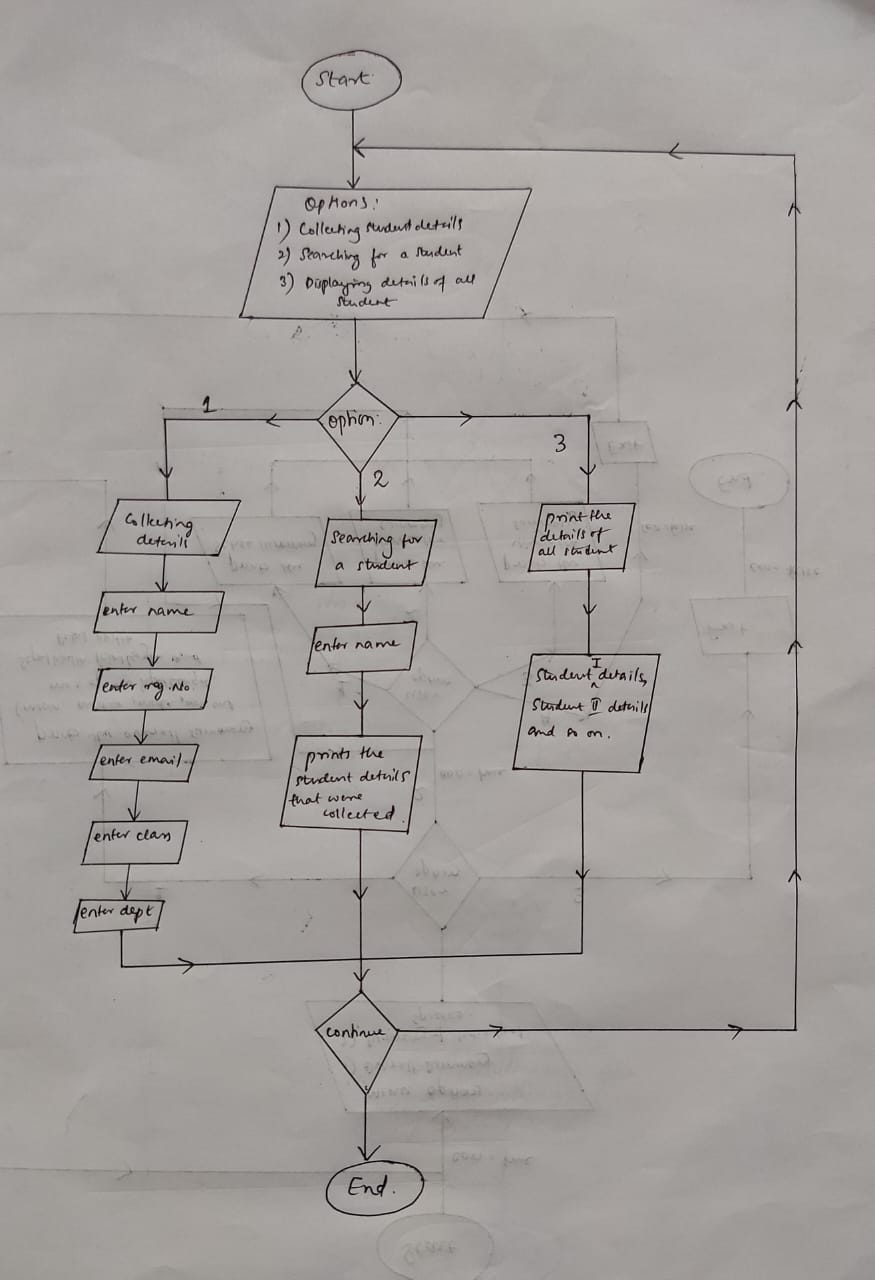 Start
Options:
1) Collecting student details
2) Searching for a student
3) Displaying details of all
student
1
option:
2
3
Collecting
details
enter name
enter reg.No
enter email
enter class
enter dept
Searching for
a student
enter name
prints the
student details
that were
collected.
print the
details of
all student
Student I details,
Student II details
and so on.
continue
End.